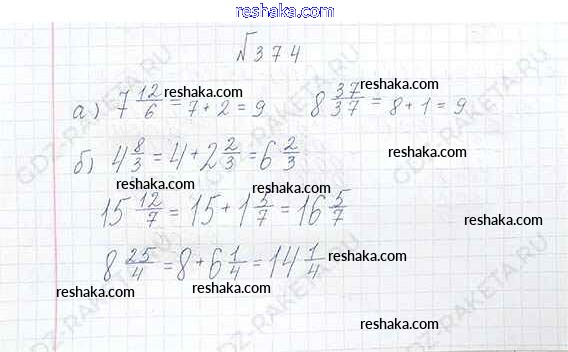 reshaka.com
№374
а) 7 12/6 = 7 + 2 = 9 8 37/37 = 8 + 1 = 9
reshaka.com reshaka.com
б) 4 8/3 = 4 + 2 2/3 = 6 2/3
reshaka.com reshaka.com reshaka.com
15 12/7 = 15 + 1 5/7 = 16 5/7
reshaka.com
8 25/4 = 8 + 6 1/4 = 14 1/4
reshaka.com reshaka.com reshaka.com
reshaka.com
GDZ-RAKETA.RU
GDZ-RAKETA.RU
GDZ-RAKETA.RU